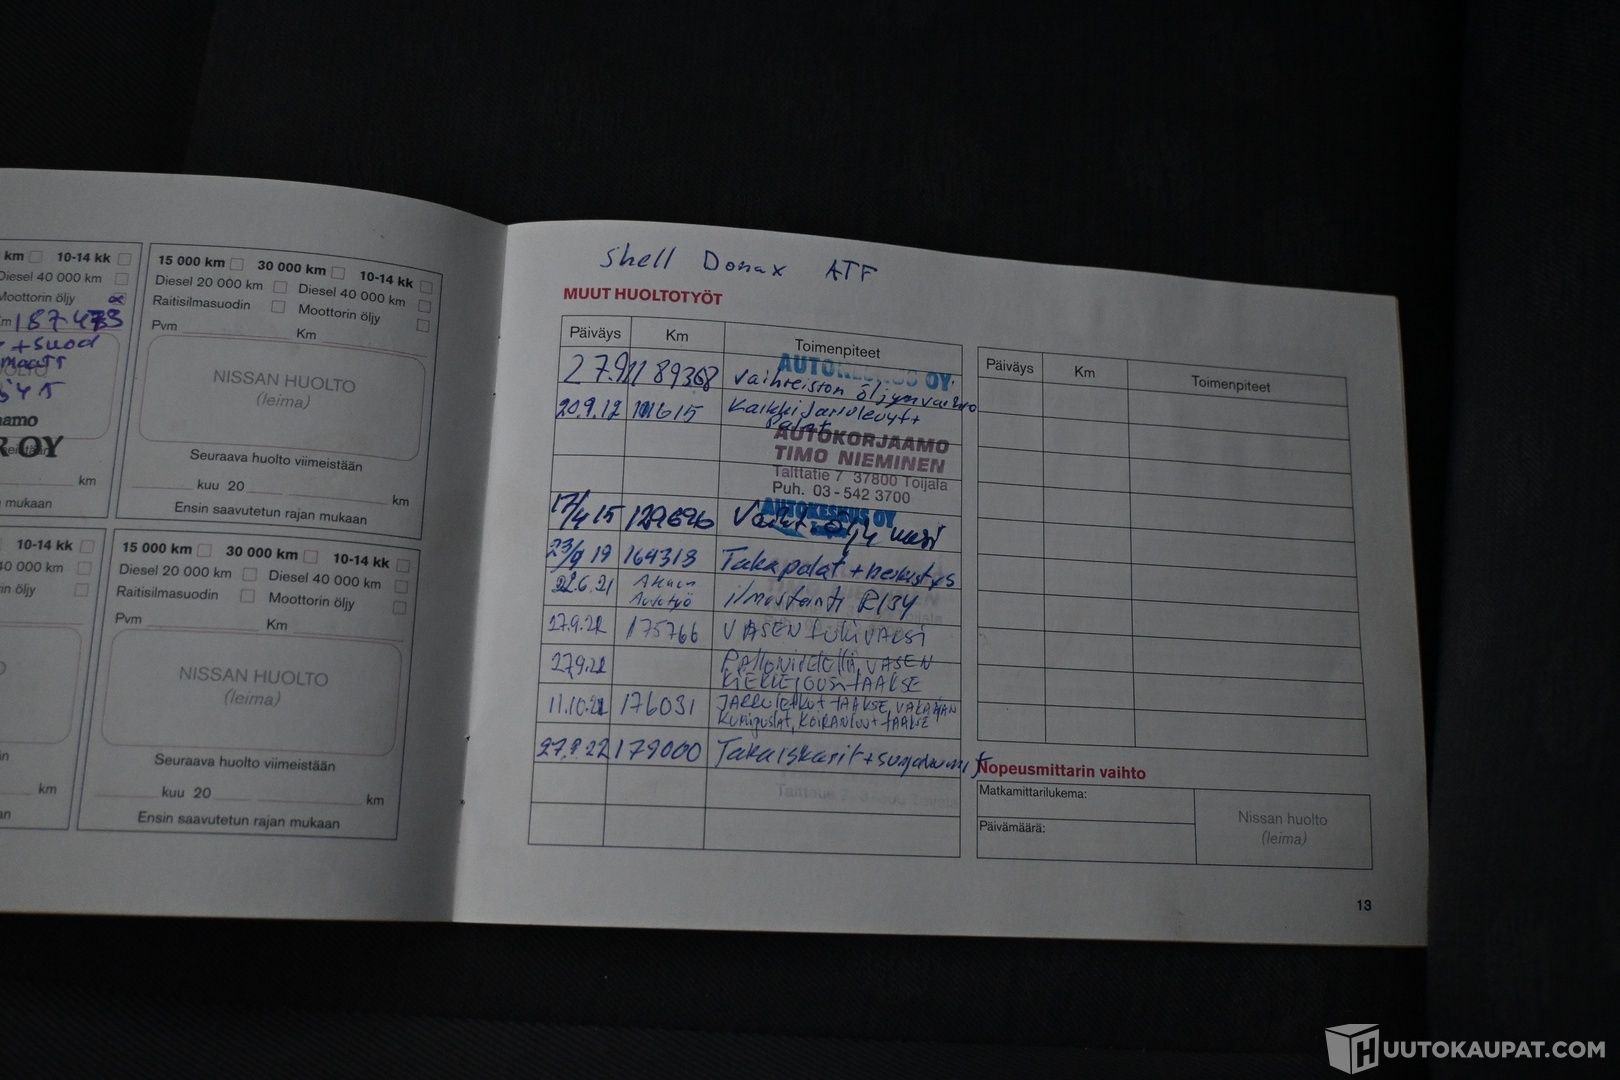 km 10-14 kk
Diesel 40 000 km
Moottorin öljy
187473
+ suod
OY
km
mukaan
10-14 kk
40 000 km
öljy
km
15 000 km 30 000 km 10-14 kk
Diesel 20 000 km Diesel 40 000 km
Raitisilmasuodin Moottorin öljy
Pvm Km
NISSAN HUOLTO
(leima)
Seuraava huolto viimeistään
kuu 20 km
Ensin saavutetun rajan mukaan
15 000 km 30 000 km 10-14 kk
Diesel 20 000 km Diesel 40 000 km
Raitisilmasuodin Moottorin öljy
Pvm Km
NISSAN HUOLTO
(leima)
Seuraava huolto viimeistään
kuu 20 km
Ensin saavutetun rajan mukaan
Shell Donax ATF
MUUT HUOLTOTYÖT
Päiväys Km Toimenpiteet
AUTOKESKUS OY
27.9.11 89368 Vaihteiston öljynvaihto
20.9.12 101615 Kaikki Jarrulevyt+
Palat
AUTOKORJAAMO
TIMO NIEMINEN
Talttatie 7 37800 Toijala
Puh. 03 - 542 3700
AUTOKESKUS OY
17/4 15 129696 öljy
23/9 19 164313 Takapalat +
22.6.21 ilmastointi R134
17.9.21 175766 VASEN tukivarsi
27.9.21 Pallonivelellä, VASEN
TAAKSE
11.10.21 176031 JARRULetkut TAAKSE, VAKAAJAN
Kumiguslat, KOIRANLUUt TAAKSE
27.9.22 179000 Takaiskarit + suojakumit
Päiväys Km Toimenpiteet
Nopeusmittarin vaihto
Matkamittarilukema:
Päivämäärä:
Nissan huolto
(leima)
13
HUUTOKAUPAT.COM